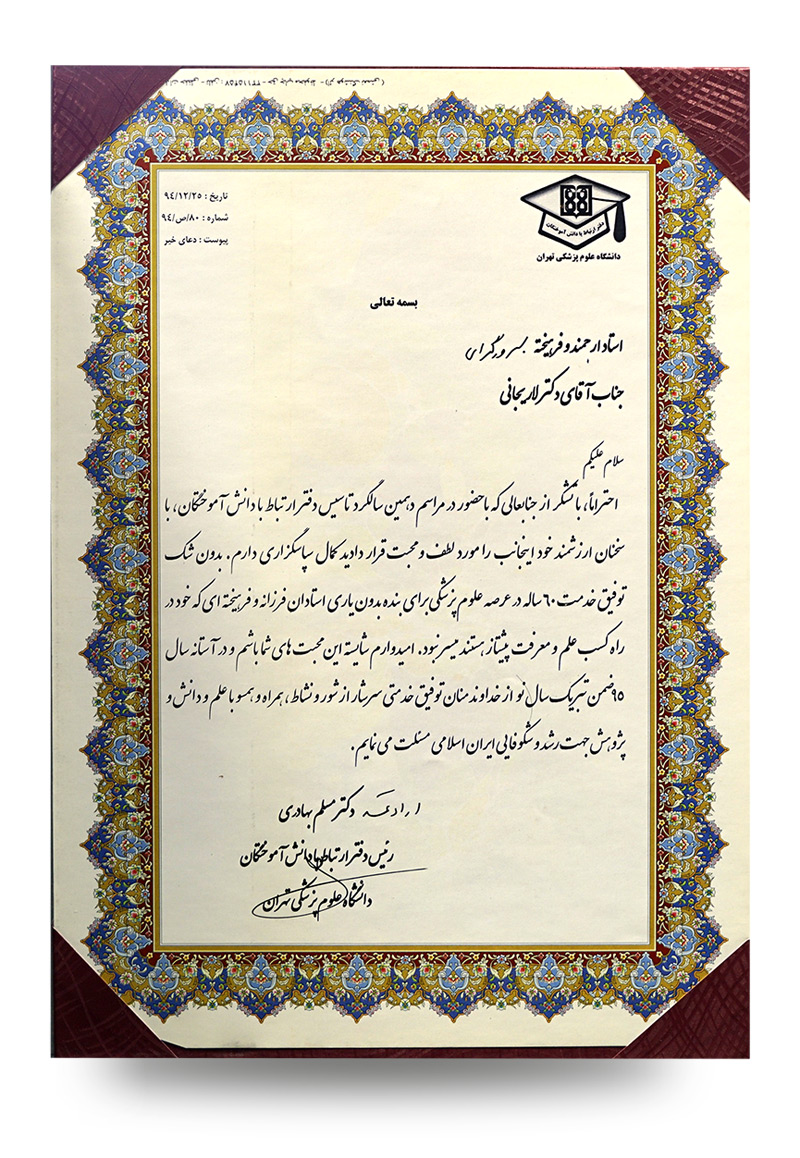 تاریخ : ۹٤/۱۲/۲٥
شماره : ۸۰/ص/۹٤
پیوست : دعای خیر
دفتر ارتباط با دانش آموختگان
دانشگاه علوم پزشکی تهران
بسمه تعالی
استاد ارجمند و فرهیخته
جناب آقای دکتر لاریجانی
سلام علیکم
احتراماً، با تشکر از جنابعالی که با حضور در مراسم دهمین سالگرد تاسیس دفتر ارتباط با دانش آموختگان، با
سخنان ارزشمند خود اینجانب را مورد لطف و محبت قرار دادید کمال سپاسگزاری دارم. بدون شک
توفیق خدمت ٦۰ ساله در عرصه علوم پزشکی برای بنده بدون یاری استادان فرزانه و فرهیخته ای که خود در
راه کسب علم و معرفت پیشتاز هستند میسر نبود. امیدوارم شایسته این محبت های شما باشم و در آستانه سال
۹٥ ضمن تبریک سال نو از خداوند منان توفیق خدمتی سرشار از شور و نشاط، همراه و همسو با علم و دانش و
پژوهش جهت رشد و شکوفایی ایران اسلامی مسئلت می نمایم.
دکتر مسلم بهادری
رئیس دفتر ارتباط با دانش آموختگان
دانشگاه علوم پزشکی تهران